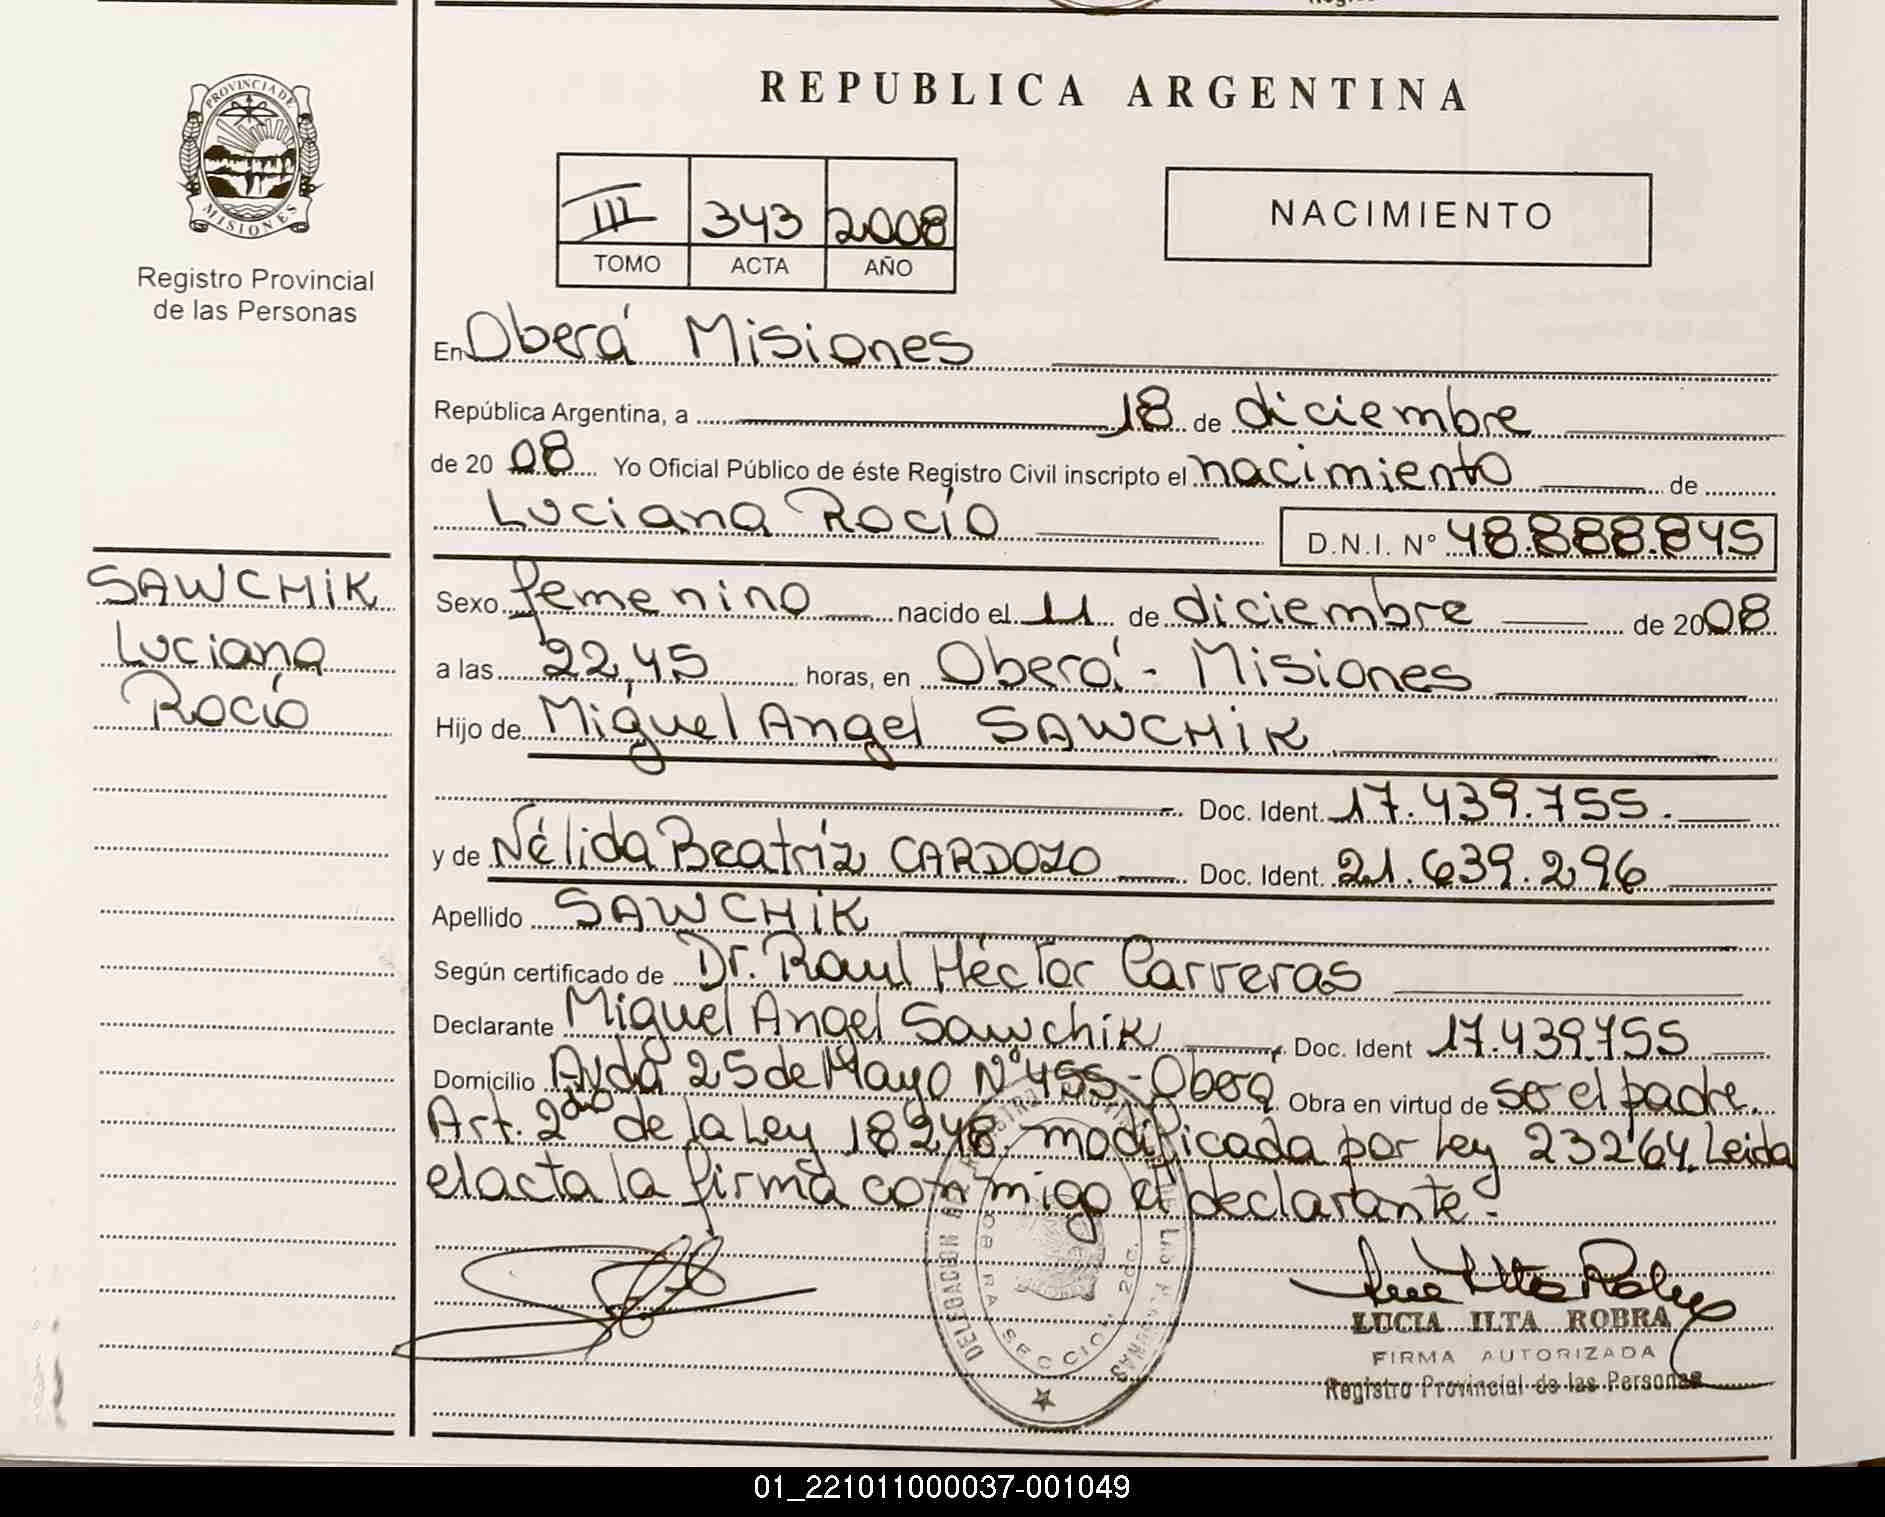 PROVINCIA DE
MISIONES
Registro Provincial
de las Personas
SAWCHIK
Luciana
Rocío
REPUBLICA ARGENTINA
III 343 2008
TOMO ACTA AÑO
NACIMIENTO
En Oberá Misiones
República Argentina, a 18 de diciembre
de 2008 Yo Oficial Público de éste Registro Civil inscripto el nacimiento de
Luciana Rocío D.N.I. N° 48.888.845
Sexo femenino nacido el 11 de diciembre de 2008
a las 22,45 horas, en Oberá - Misiones
Hijo de Miguel Angel SAWCHIK
Doc. Ident. 17.439.755.
y de Nélida Beatríz CARDOZO Doc. Ident. 21.639.296
Apellido SAWCHIK
Según certificado de Dr. Raul Héctor Carreras
Declarante Miguel Angel Sawchik Doc. Ident 17.439.755
Domicilio Avda 25 de Mayo N° 455 - Obera Obra en virtud de ser el padre.
Art. 2do de la Ley 18248 modificada por Ley 23264. Leida
el acta la firma conmigo el declarante.
DELEGACION
OBERA SECCION 2da.
LUCIA ILTA ROBRA
FIRMA AUTORIZADA
Registro Provincial de las Personas
01_221011000037-001049